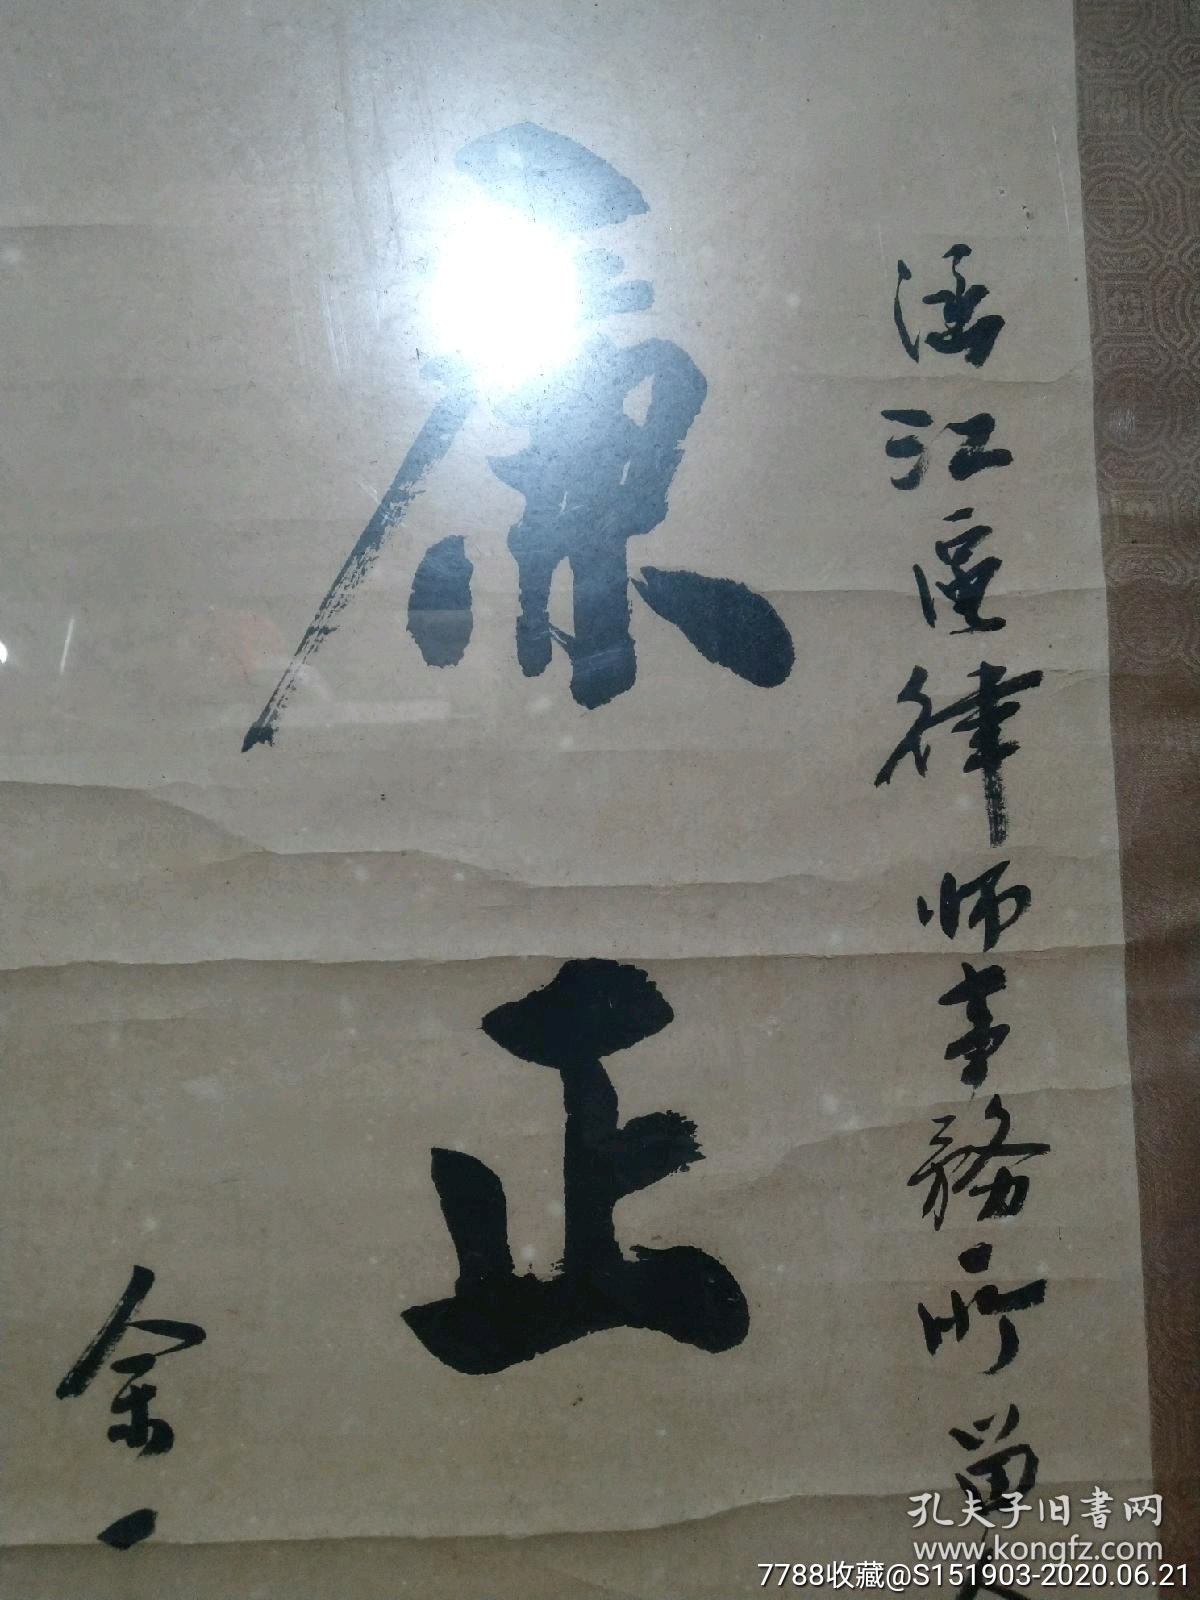 涵江區律师事務所留
廉正
余一
孔夫子旧書网
www.kongfz.com
7788收藏@S151903-2020.06.21